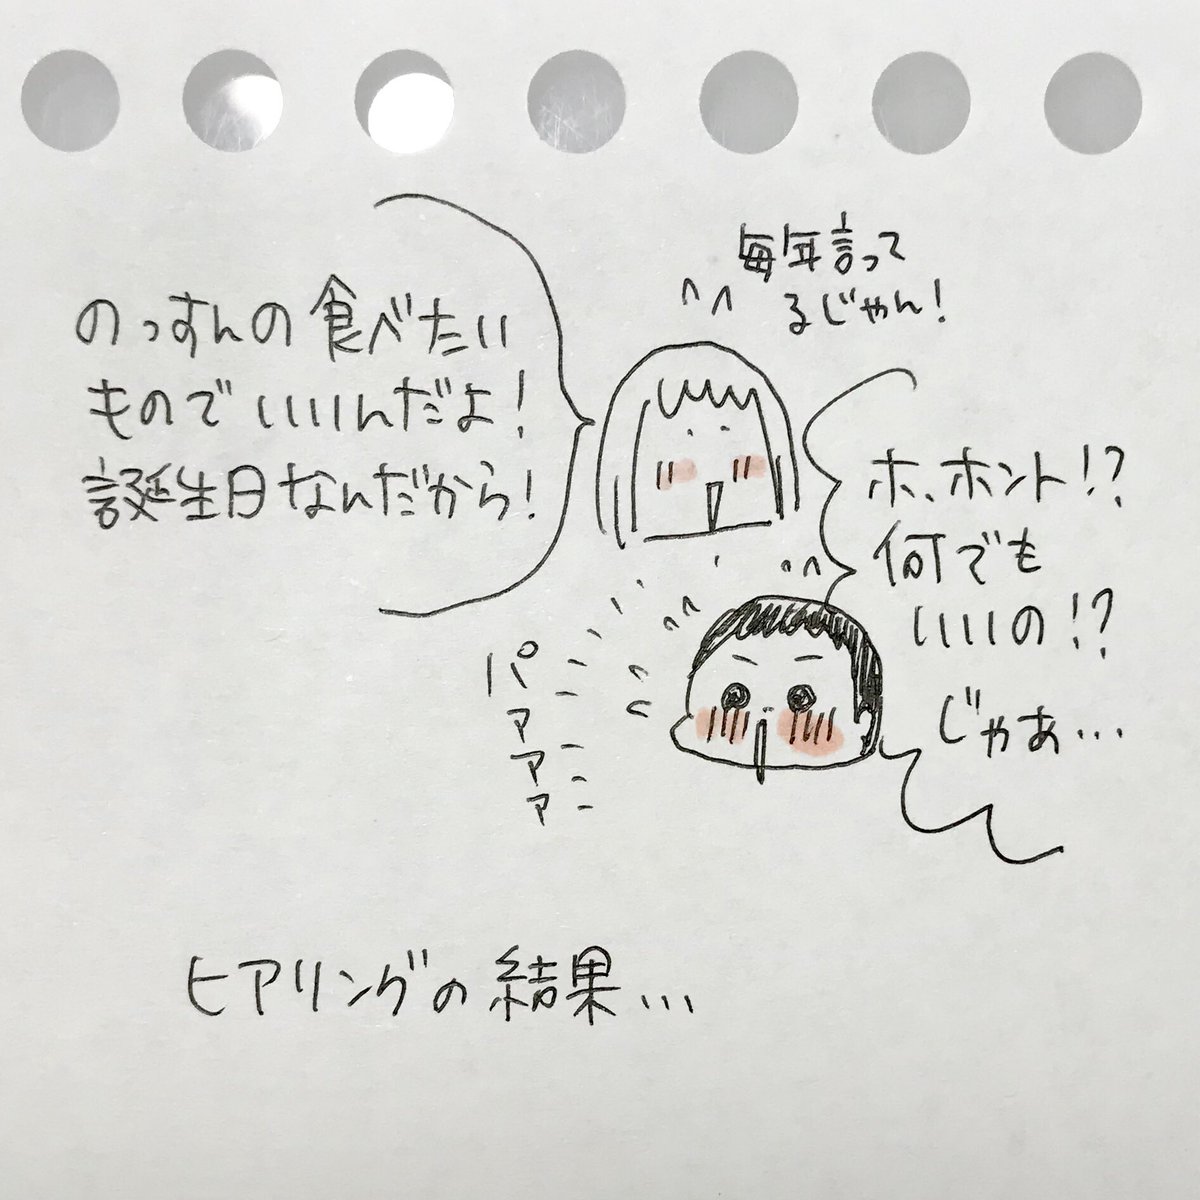 のっすんの食べたい
ものでいいんだよ!
誕生日なんだから!
毎年言って
るじゃん!
ホ、ホント!?
何でも
いいの!?
じゃあ...
パァァァ
ヒアリングの結果...